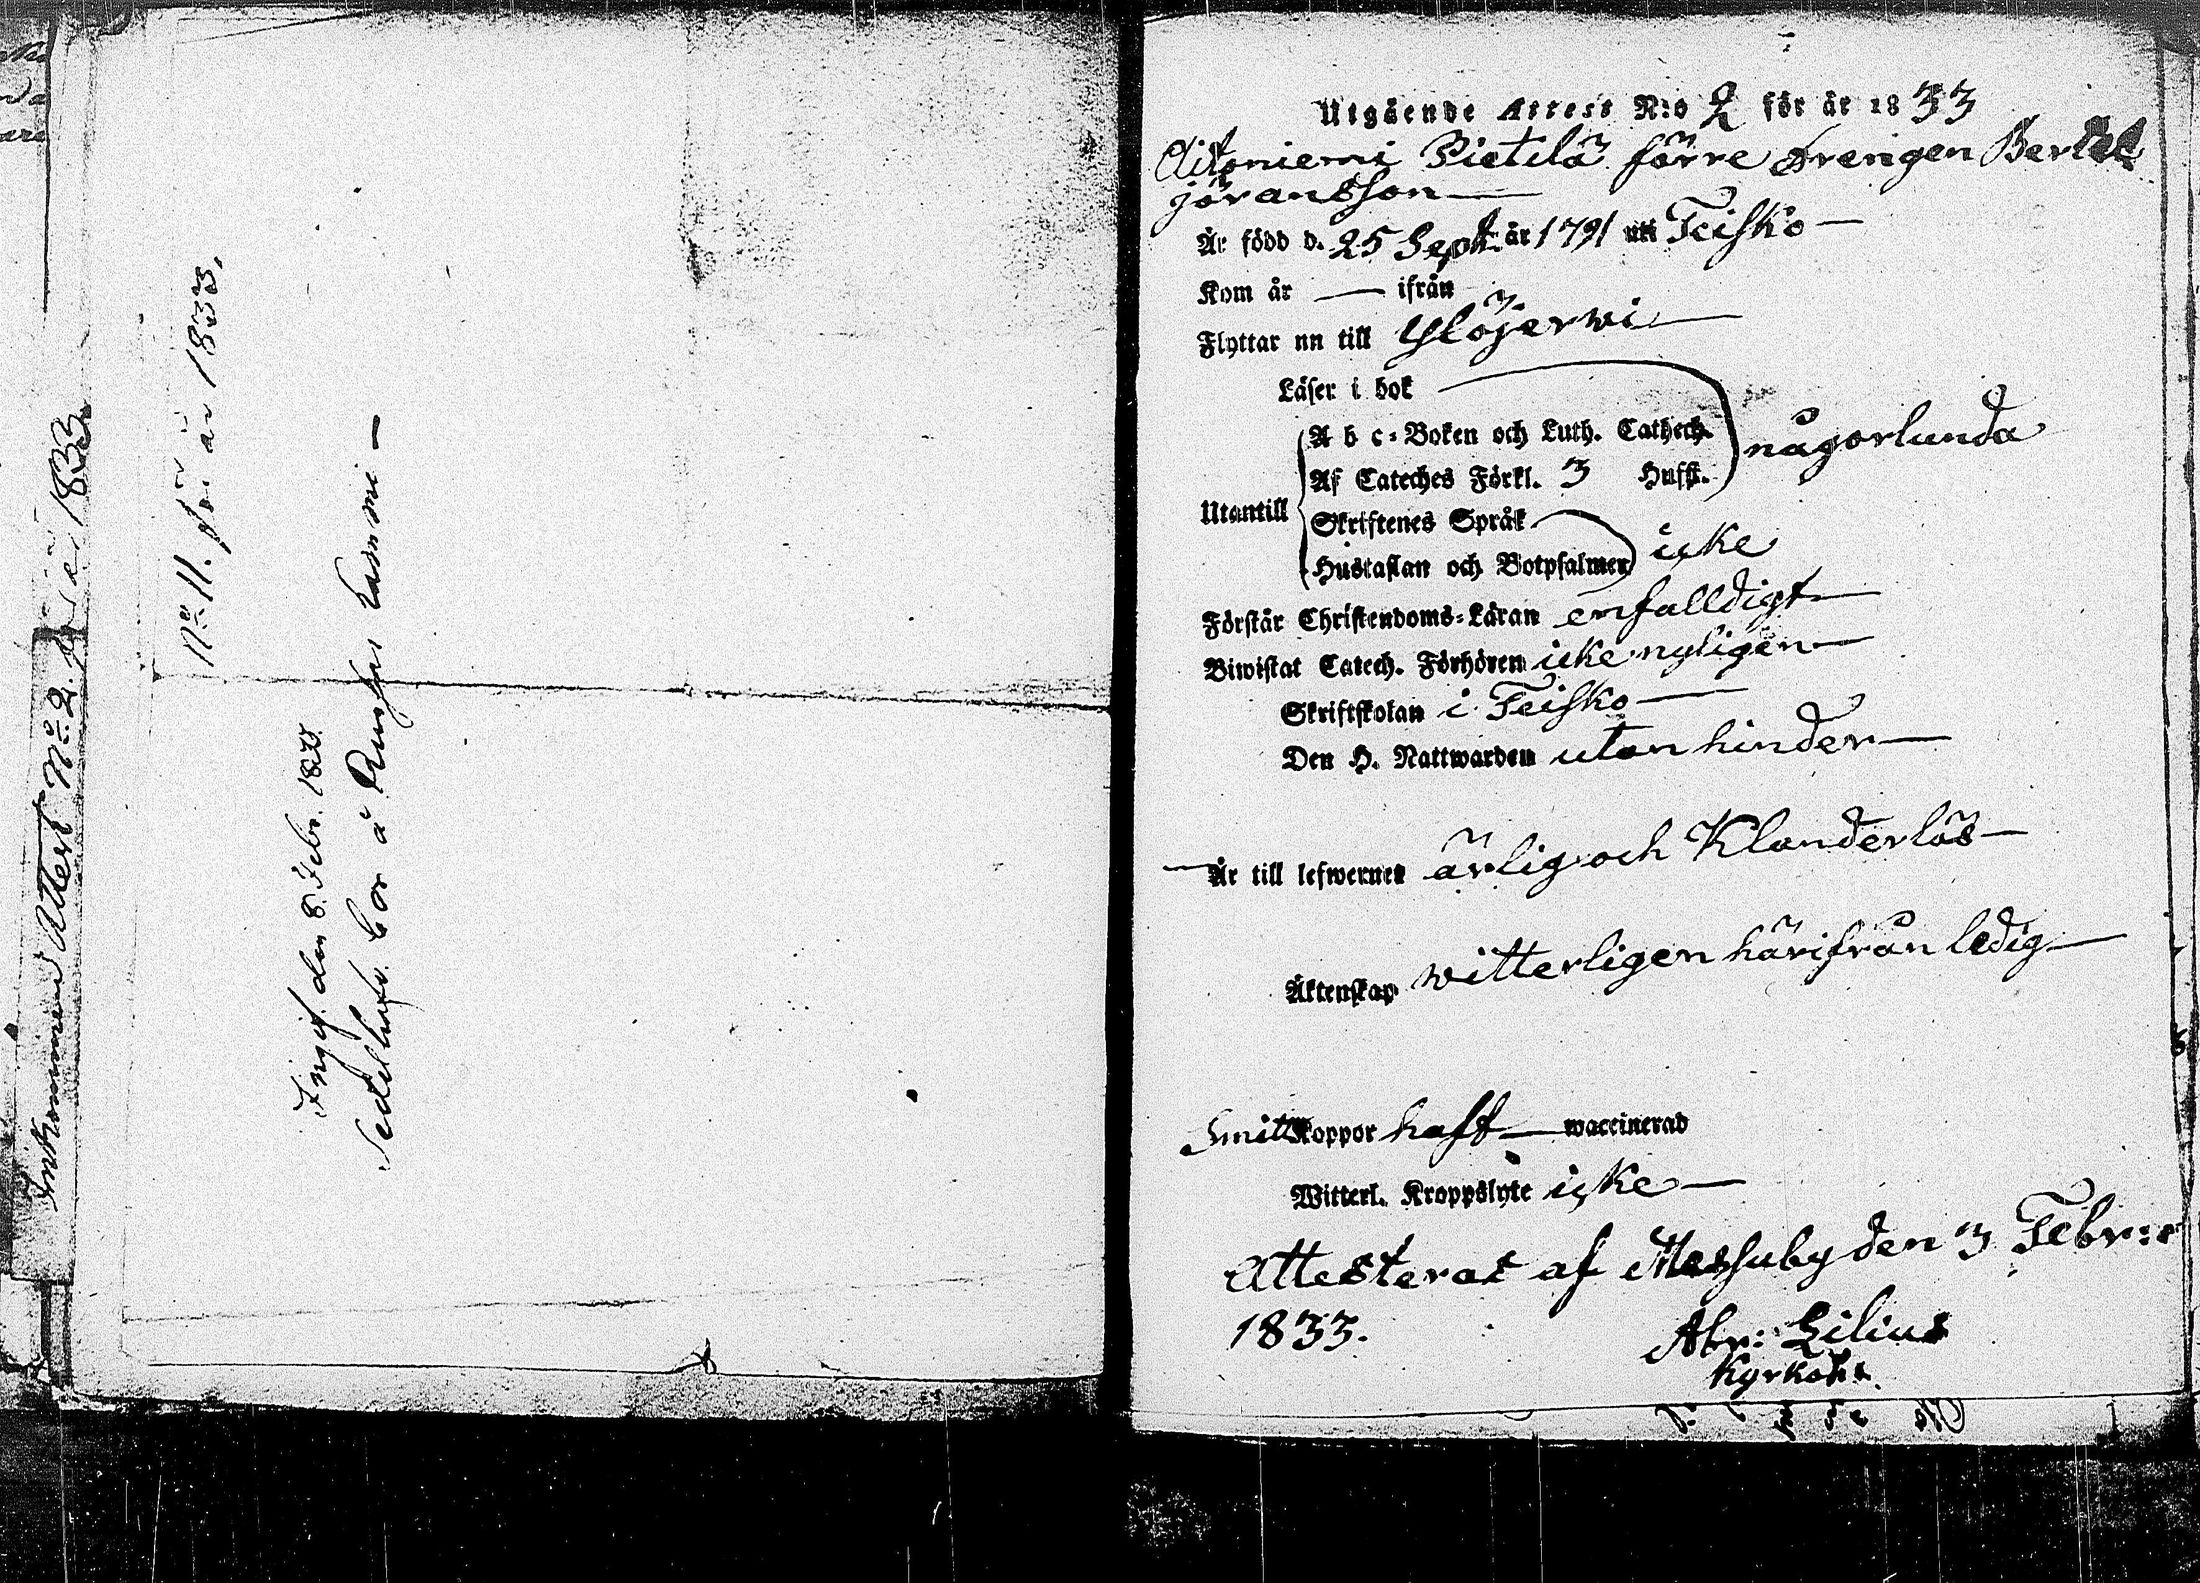 Inkommen Attest No 2. för år 1833
No 11. för år 1833.
Ingif. den 8 Febr. 1833.
Sedelhafv. bor å
Utgående Attest N:o 2 för år 1833
Aitoniemi Pietilä förre Drengen Bertel
jöransson —
Är född d. 25 Sept. år 1791 uti Teisko —
Kom år — ifrån
Flyttar nu till Ylöjerwi —
Läser i bok
A b c-Boken och Luth. Cathech. någorlunda
Af Cateches Förkl. 3 Hufst.
Utantill
Skriftenes Språk
Hustaflan och Botpsalmer icke
Förstår Christendoms-Läran enfalldigt —
Biwistat Catech. Förhören icke nyligen —
Skriftskolan i Teisko —
Den H. Nattwarden utan hinder —
— Är till lefwernet ärlig och Klanderlös —
Äktenskap witterligen härifrån ledig —
Smittkoppor haft — waccinerad
Witterl. Kroppslyte icke —
Attesterar af Messuby den 3 Febr:
1833.
Abr: Lilius
Kyrkoh.